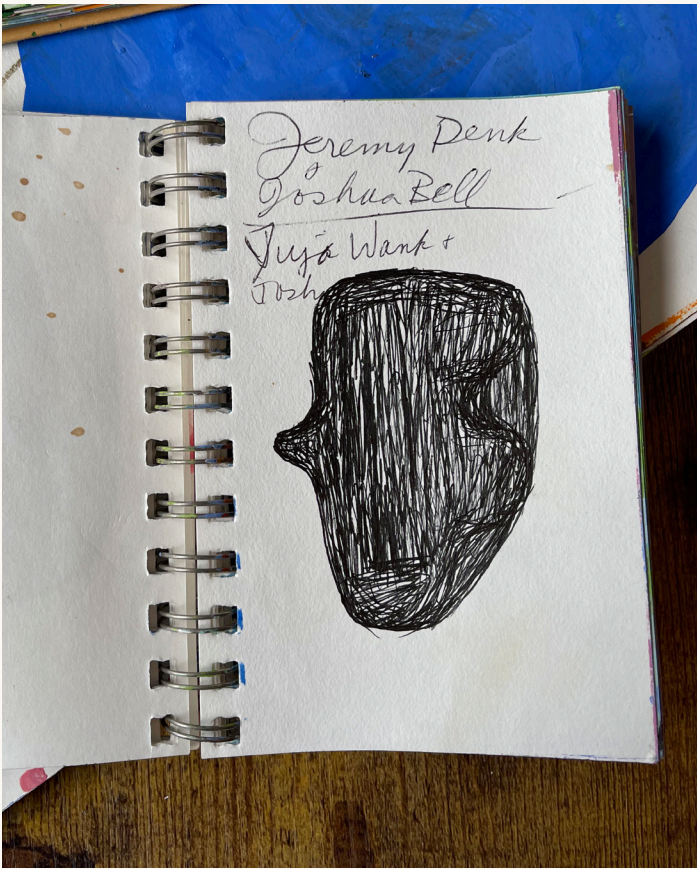 Jeremy Denk
& Joshua Bell
Yuja Wank &
Josh